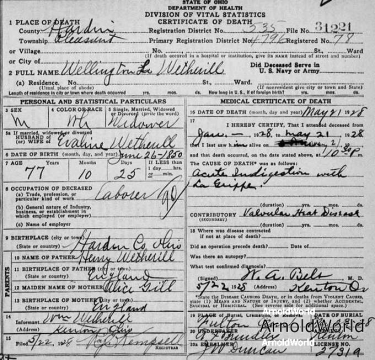 STATE OF OHIO
DEPARTMENT OF HEALTH
DIVISION OF VITAL STATISTICS
CERTIFICATE OF DEATH
1 PLACE OF DEATH
County Hardin Registration District No. 535 File No. 31221
Township Pleasant Primary Registration District No. 4796 Registered No. 77
or Village No. St., Ward
or City of (If death occurred in a hospital or institution, give its name instead of street and number)
2 FULL NAME Wellington Wetherill Did Deceased Serve in U. S. Navy or Army
(a) Residence. No. St., Ward.
(Usual place of abode) (If nonresident give city or town and State)
PERSONAL AND STATISTICAL PARTICULARS
3 SEX M 4 COLOR OR RACE Wh 5 Single, Married, Widowed or Divorced (write the word) Widower
5a If married, widowed, or divorced
HUSBAND of
(or) WIFE of Evaline Wetherill
6 DATE OF BIRTH (month, day, and year) June 26-1850
7 AGE Years Months Days If LESS than 1 day
77 10 25
8 OCCUPATION OF DECEASED
(a) Trade, profession, or particular kind of work Laborer
(b) General nature of industry, business, or establishment in which employed (or employer)
(c) Name of employer
9 BIRTHPLACE (city or town) Hardin Co. Ohio
(State or country)
PARENTS
10 NAME OF FATHER Henry Wetherill
11 BIRTHPLACE OF FATHER (city or town)
(State or country) England
12 MAIDEN NAME OF MOTHER Alice Gill
13 BIRTHPLACE OF MOTHER (city or town)
(State or country) England
14 Informant Wm Wetherill
(Address) Kenton, Ohio
15 Filed 5/22, 1928
MEDICAL CERTIFICATE OF DEATH
16 DATE OF DEATH (month, day, and year) May 21 1928
17 I HEREBY CERTIFY, That I attended deceased from
Jan. 1928, to May 21 1928
that I last saw him alive on
and that death occurred, on the date stated above, at 10:30 P.m.
The CAUSE OF DEATH was as follows:
Acute Indigestion with
La Grippe
CONTRIBUTORY Valvular Heart Disease
(Secondary)
18 Where was disease contracted
if not at place of death?
Did an operation precede death? Date of
Was there an autopsy?
What test confirmed diagnosis?
(Signed) W. A. Belt M. D.
5/22 1928 (Address) Kenton O.
W Duncan 2731A
ArnoldWorld
ArnoldWorld